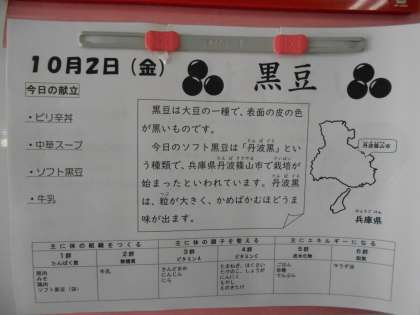 10月2日(金)
黒豆
今日の献立
・ピリ辛丼
・中華スープ
・ソフト黒豆
・牛乳
黒豆は大豆の一種で、表面の皮の色
が黒いものです。
今日のソフト黒豆は「丹波黒」とい
う種類で、兵庫県丹波篠山市で栽培が
始まったといわれています。丹波黒
は、粒が大きく、かめばかむほどうま
味が出ます。
丹波篠山市
兵庫県
主に体の組織をつくる
主に体の調子を整える
主にエネルギーになる
1群
たんぱく質
2群
無機質
3群
ビタミンA
4群
ビタミンC
5群
炭水化物
6群
脂質
豚肉
みそ
鶏肉
ソフト黒豆(袋)
牛乳
さんどまめ
にんじん
にら
たまねぎ、はくさい
たけのこ、しょうが
にんにく
もやし
えのきたけ
ごはん
砂糖
でんぷん